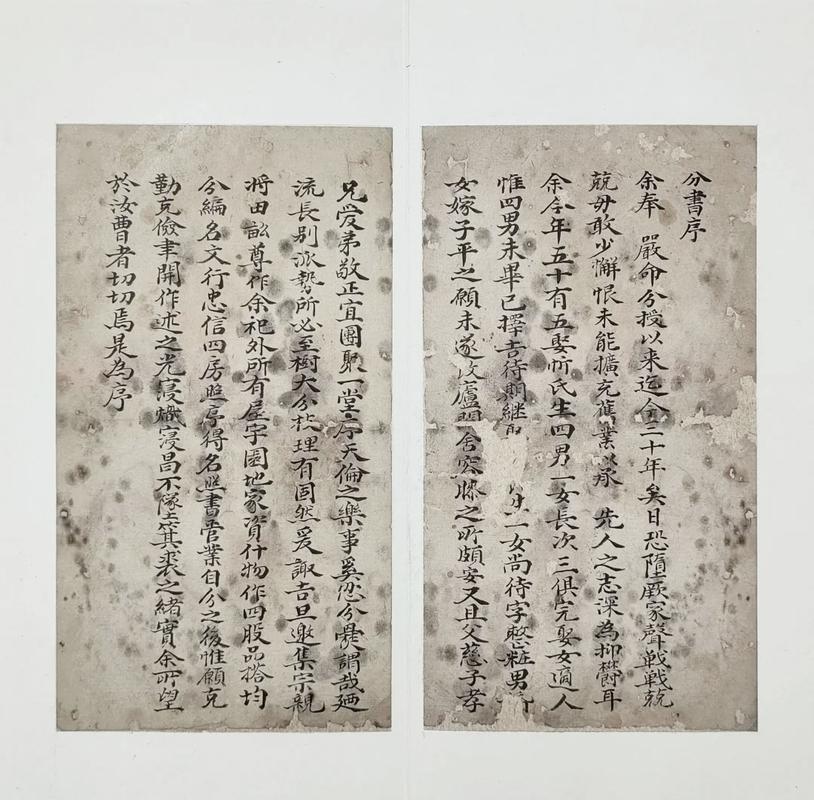 分書序
余奉 嚴命分授以來迄今三十年矣日恐墮厥家聲戰戰兢
兢毋敢少懈恨未能擴充舊業以承 先人之志深為抑欝耳
余今年五十有五娶忻氏生四男一女長次三俱完娶女適人
惟四男未畢已擇吉待期継 一女尚待字整粧男
女嫁子平之願未遂故廬 舍容膝之所頗安又且父慈子孝
兄愛弟敬正宜團聚一堂序天倫之樂事奚忍分爨謂哉廼
流長別派勢所必至樹大分枝理有固然爰諏吉旦邀集宗親
将田畝尊作余祀外所有屋宇園地家資什物作四股品搭均
分編名文行忠信四房照序得名照書管業自分之後惟願克
勤克儉聿開作述之光寖熾寖昌不墜箕裘之緒實余所望
於汝曹者切切焉是為序